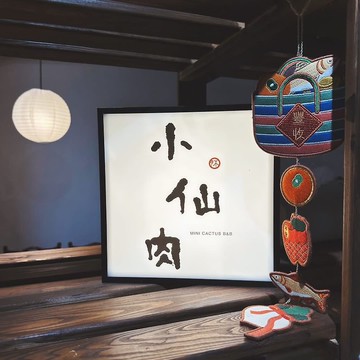 小
仙
肉
MINI CACTUS B&B
豐
收